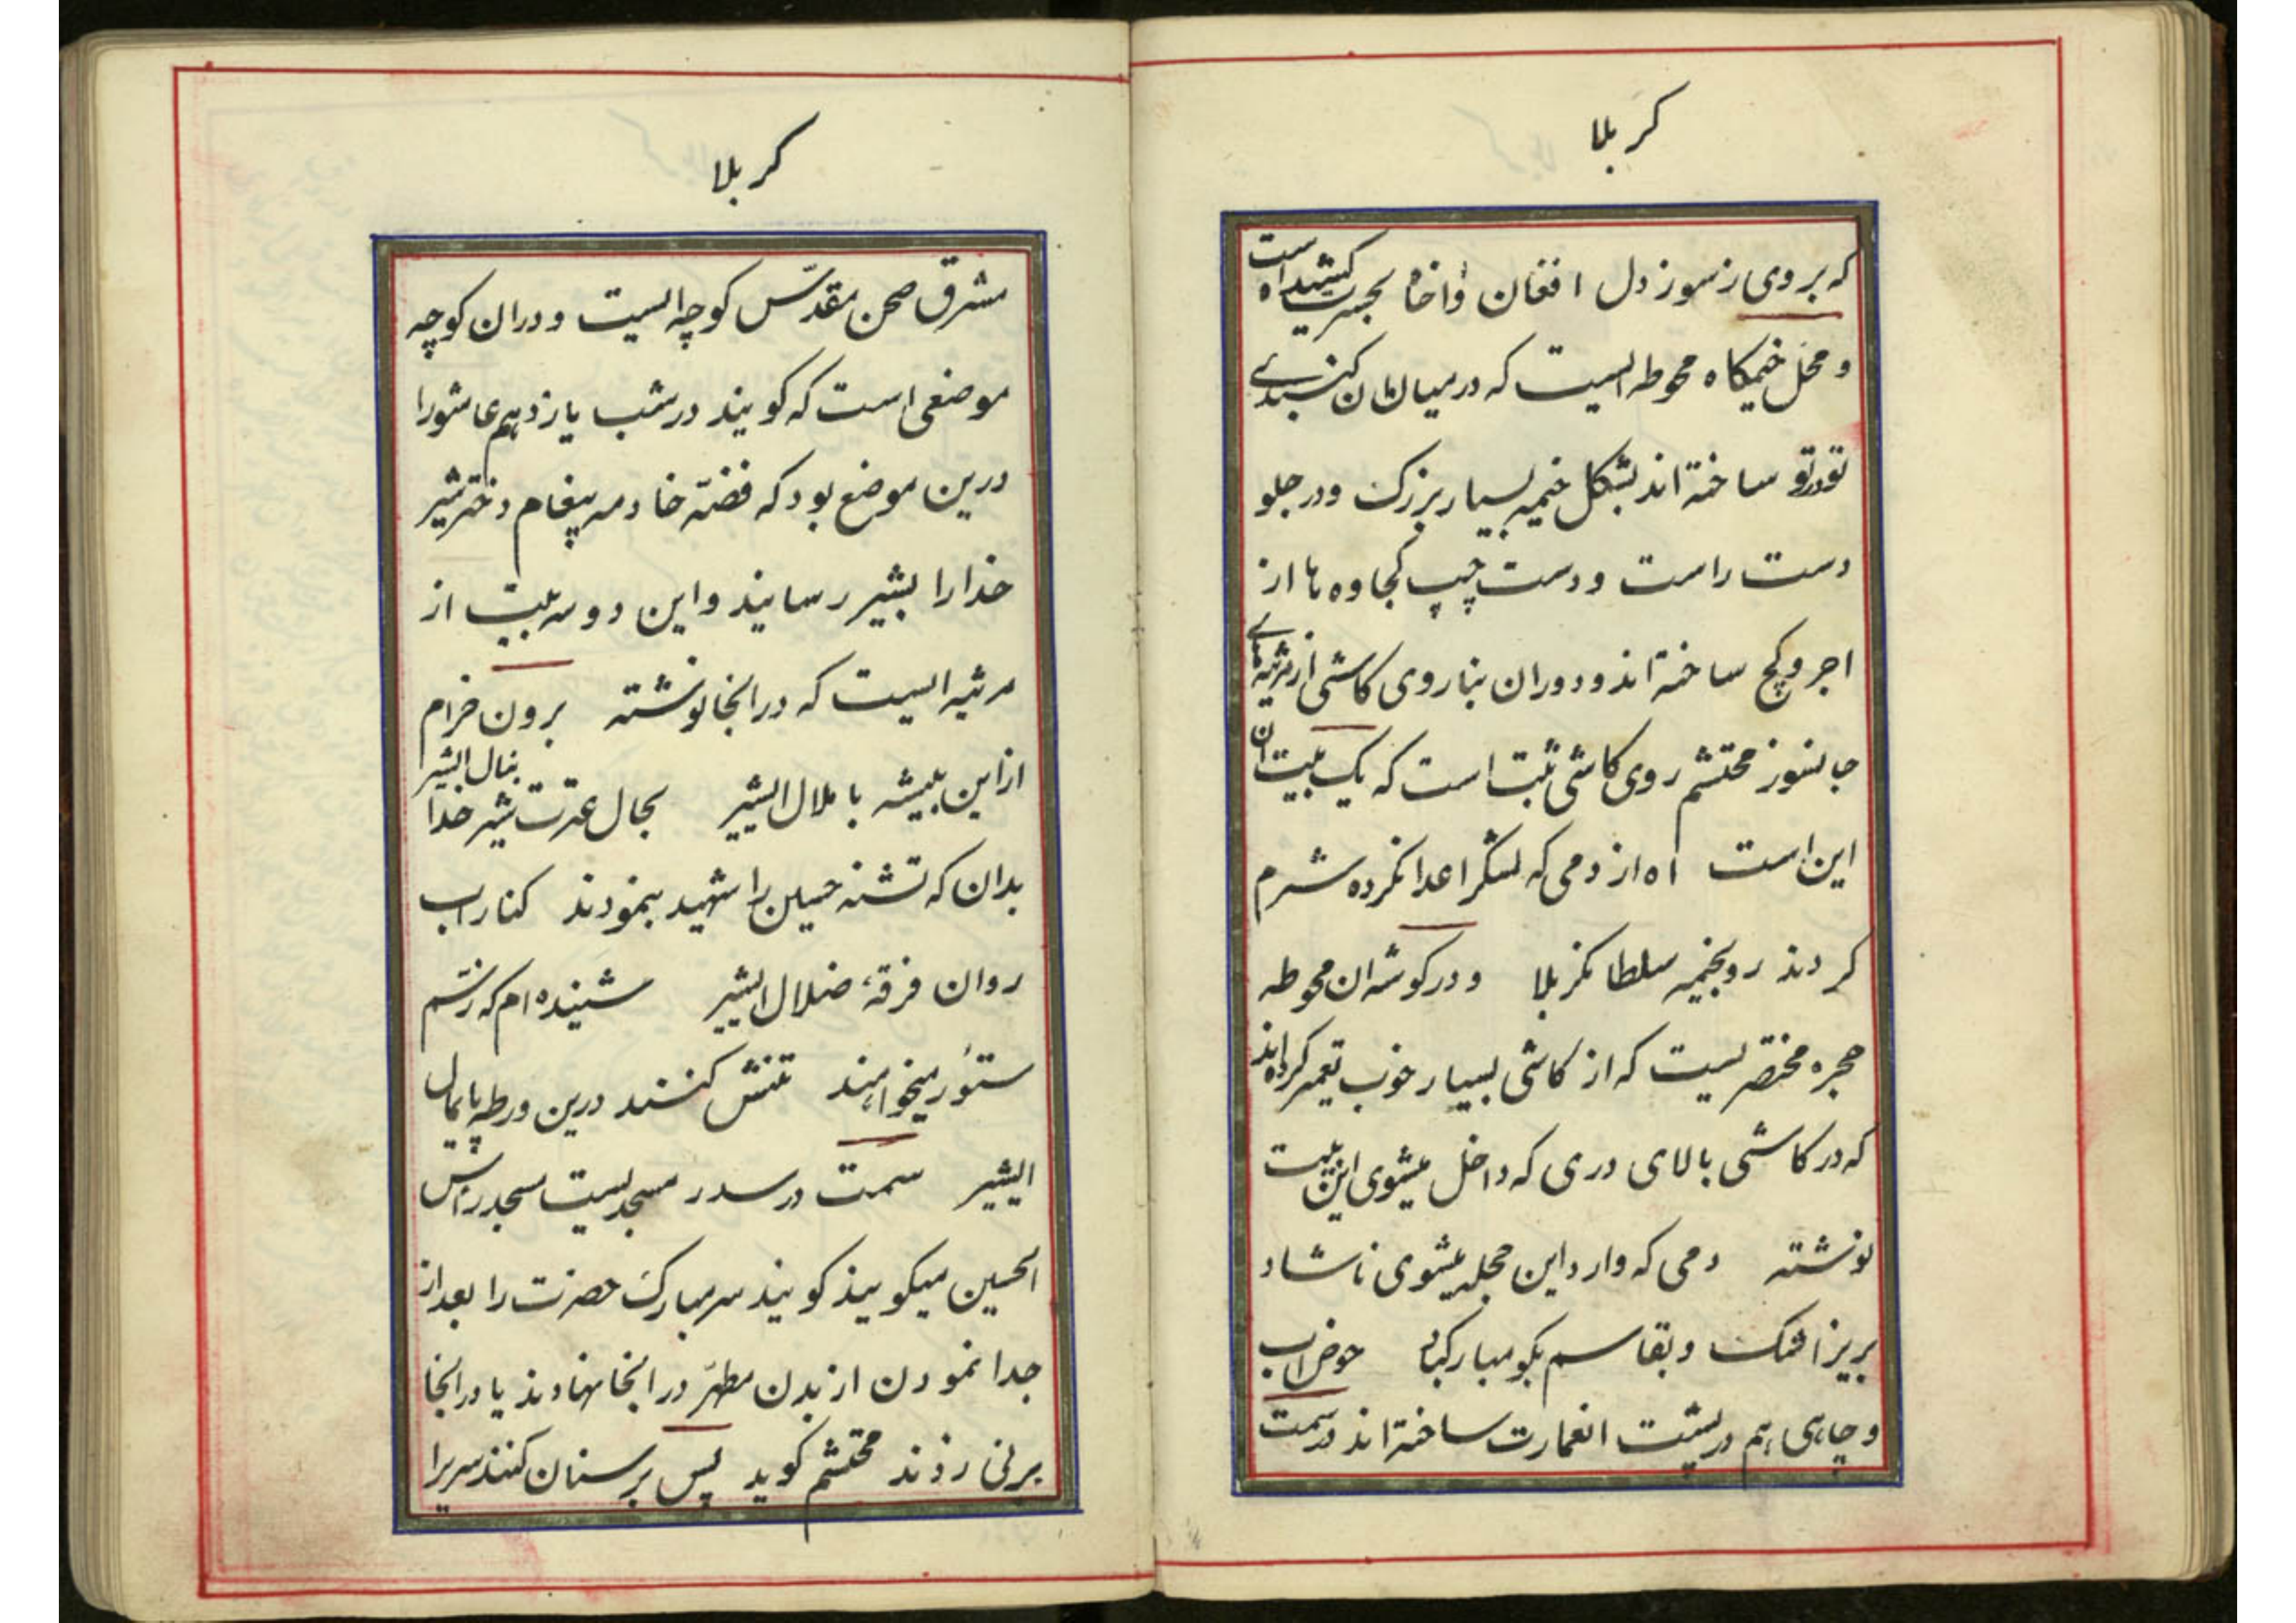 کربلا
که بر وی ز سوز دل افغان واخاه بحسرت کشیداست
و محل خیمکاه محوطه ایست که در میان ان کنبدی
تو در تو ساخته اند بشکل خیمه بسیار بزرک و در جلو
دست راست و دست چپ کجاوه ها از
اجر و کچ ساخته اند و دوران بنا روی کاشی از مرثیه های
جانسوز محتشم روی کاشی ثبت است که یک بیت ان
این است اه از دمی که لشکر اعدا نکرده شرم
کردند رو بخیمه سلطان کربلا و در کوشه ان محوطه
حجره مختصریست که از کاشی بسیار خوب تعمیر کرده اند
که در کاشی بالای دری که داخل میشوی این بیت
نوشته دمی که وارد این حجله میشوی ناشاد
بریز اشک و بقاسم بکو مبارکباد حوض اب
و چاهی هم در پشت انعمارت ساخته اند در سمت
کربلا
مشرق صحن مقدّس کوچه ایست و دران کوچه
موضعی است که کویند در شب یازدهم عاشورا
درین موضع بود که فضّه خادمه پیغام دختر شیر
خدا را بشیر رسانید و این دو سه بیت از
مرثیه ایست که در انجا نوشته برون خرام
از این بیشه با ملال ایشیر بحال عترت شیر خدا بنال ایشیر
بدان که تشنه حسین را شهید بنمودند کنار اب
روان فرقهٔ ضلال ایشیر شینده ام که ز سّم
ستور میخواهند تنش کنند درین ورطه پایمال
ایشیر سمت در سدر مسجدیست مسجد راس
الحسین میکویند کویند سر مبارک حضرت را بعد از
جدا نمودن از بدن مطهّر در انجا نهادند یا در انجا
بر نی زدند محتشم کوید پس بر سنان کنند سریرا